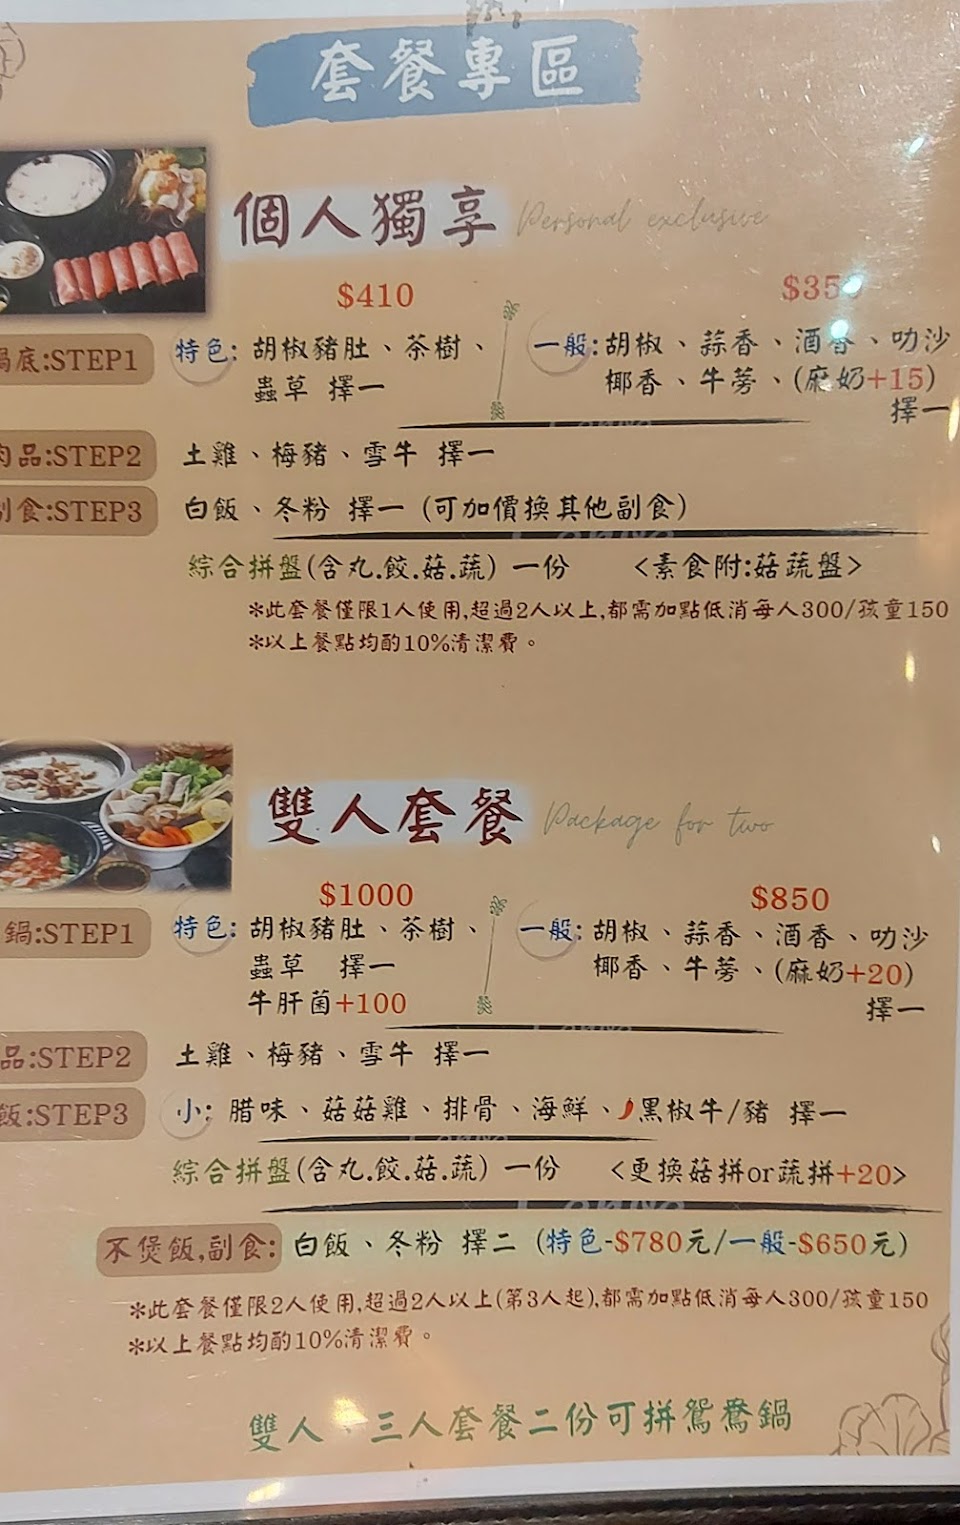 套餐專區
個人獨享 Personal exclusive
$410
$35
鍋底:STEP1
特色: 胡椒豬肚、茶樹、
蟲草 擇一
一般: 胡椒、蒜香、酒香、叻沙
椰香、牛蒡、(麻奶+15)
擇一
肉品:STEP2
土雞、梅豬、雪牛 擇一
副食:STEP3
白飯、冬粉 擇一 (可加價換其他副食)
綜合拼盤(含丸.餃.菇.蔬) 一份 <素食附:菇蔬盤>
*此套餐僅限1人使用,超過2人以上,都需加點低消每人300/孩童150
*以上餐點均酌10%清潔費。
雙人套餐 Package for two
$1000
$850
鍋:STEP1
特色: 胡椒豬肚、茶樹、
蟲草 擇一
牛肝菌+100
一般: 胡椒、蒜香、酒香、叻沙
椰香、牛蒡、(麻奶+20)
擇一
品:STEP2
土雞、梅豬、雪牛 擇一
飯:STEP3
小: 腊味、菇菇雞、排骨、海鮮、黑椒牛/豬 擇一
綜合拼盤(含丸.餃.菇.蔬) 一份 <更換菇拼or蔬拼+20>
不煲飯,副食: 白飯、冬粉 擇二 (特色-$780元/一般-$650元)
*此套餐僅限2人使用,超過2人以上(第3人起),都需加點低消每人300/孩童150
*以上餐點均酌10%清潔費。
雙人、三人套餐二份可拼鴛鴦鍋